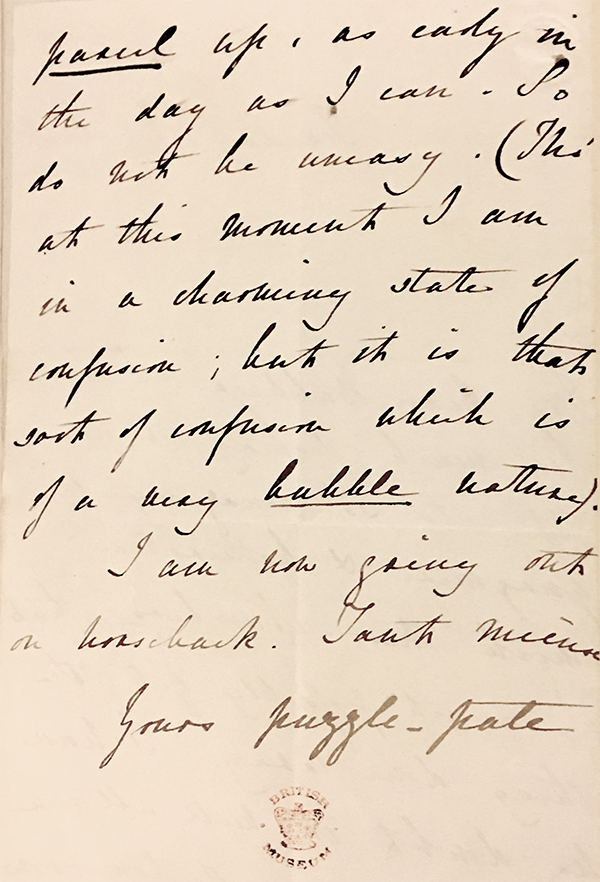 parcel up, as early in
the day as I can. So
do not be uneasy. (Tho'
at this moment I am
in a charming state of
confusion; but it is that
sort of confusion which is
of a very bubble nature).
I am now going out
on horseback. Tant mieux
Yours puzzle-pate
BRITISH
MUSEUM